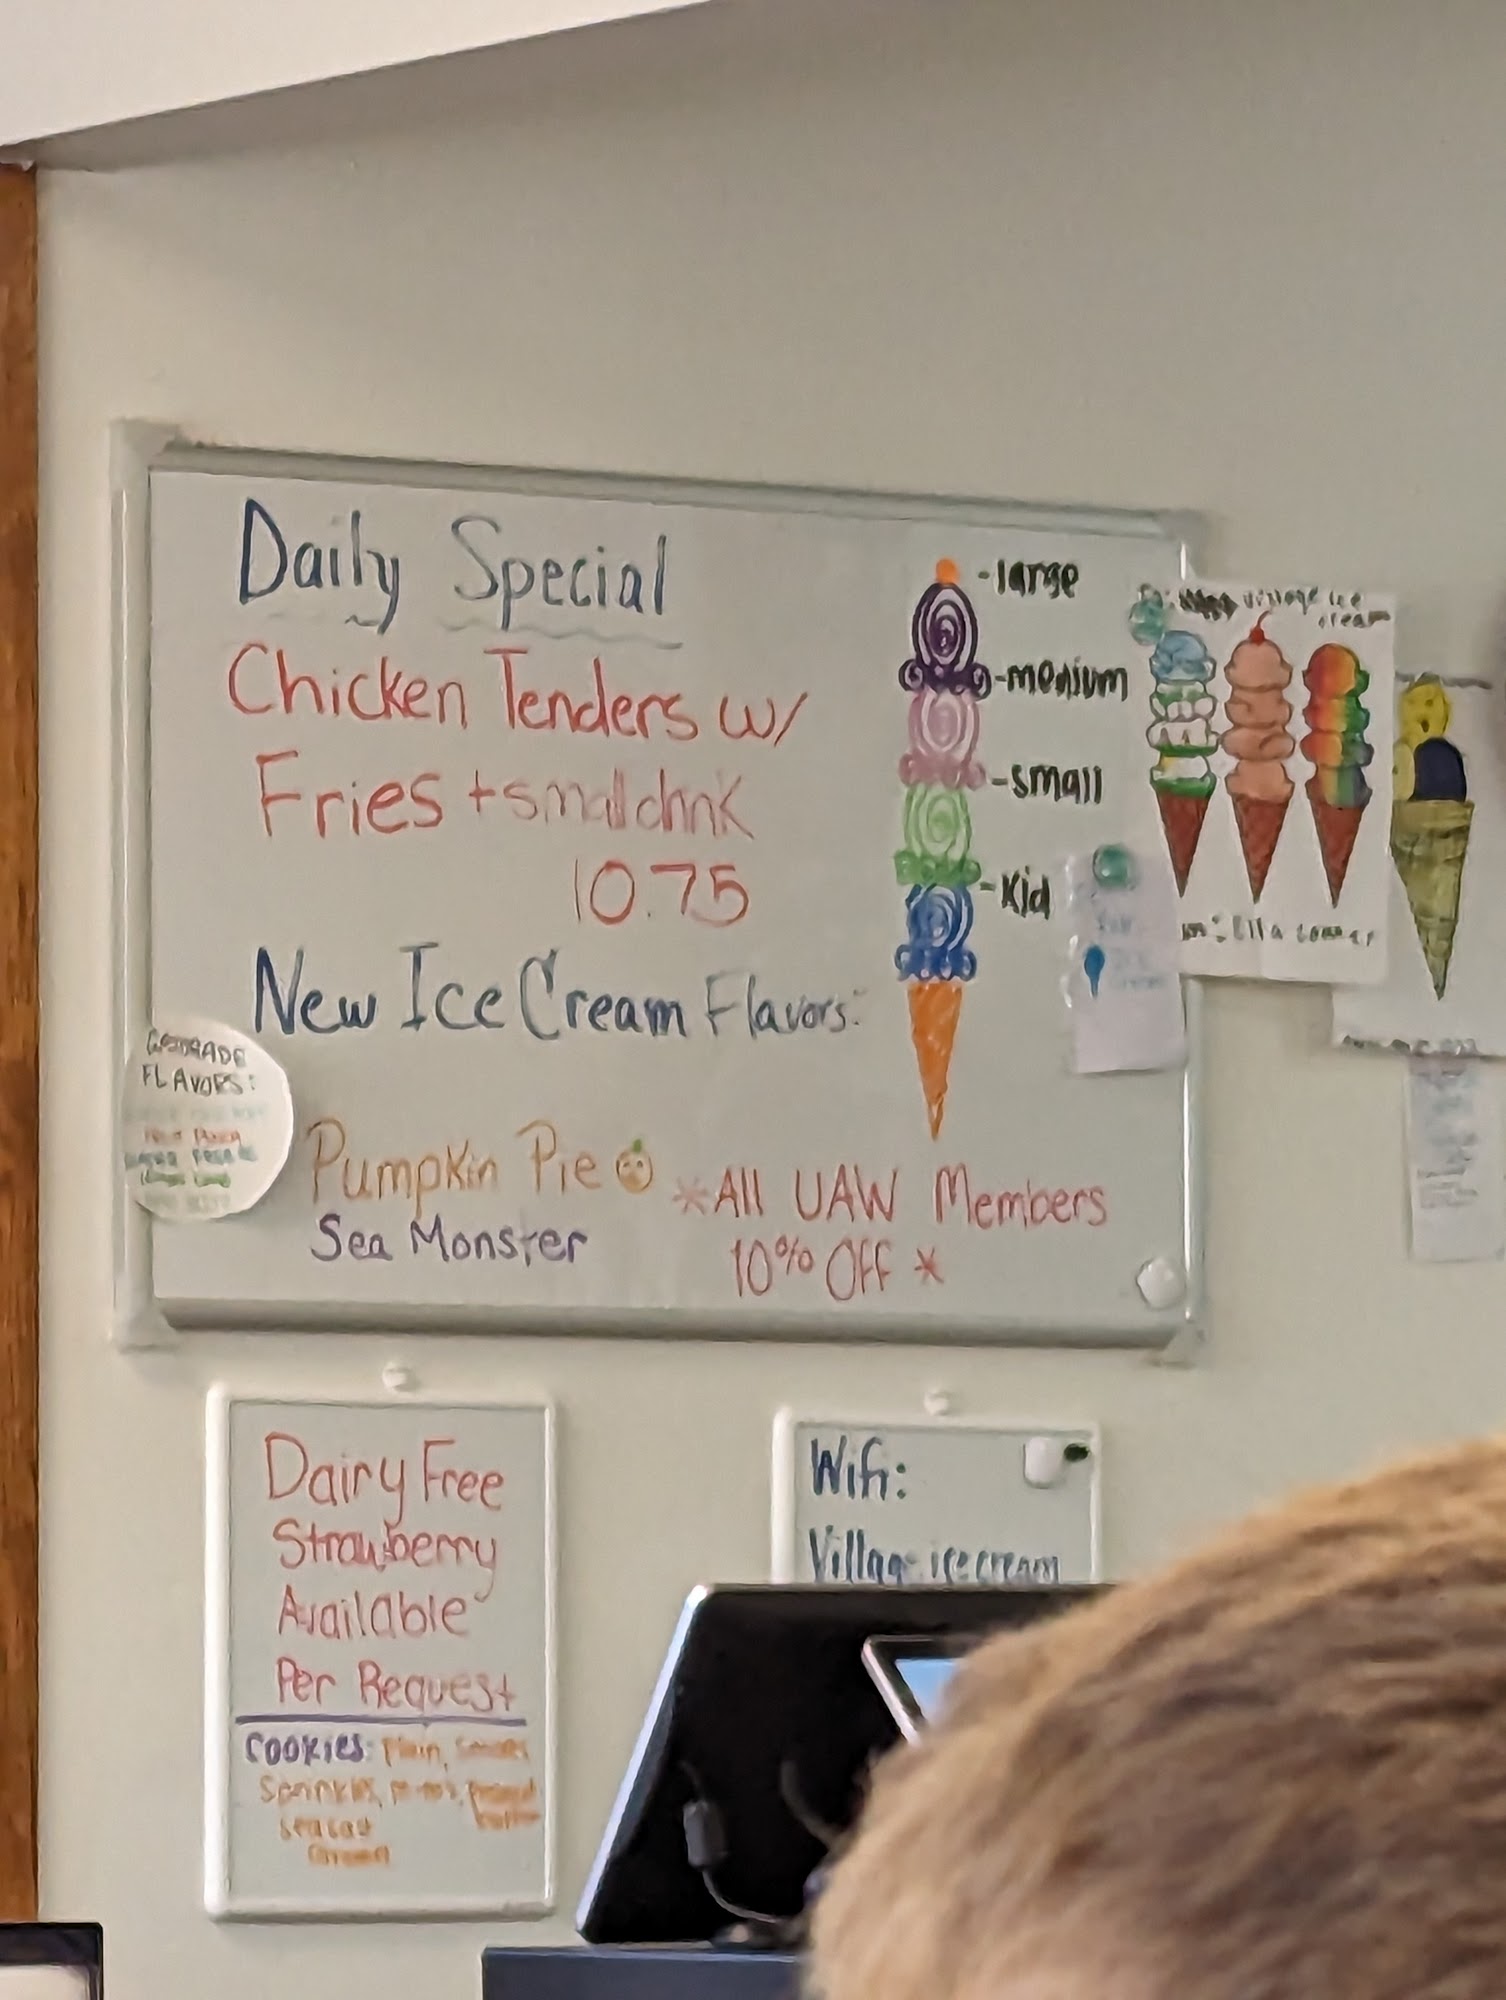 Daily Special
Chicken Tenders w/
Fries + small drink
10.75
New Ice Cream Flavors:
Pumpkin Pie
Sea Monster
*All UAW Members
10% Off *
-large
-medium
-small
-Kid
village ice
cream
Ella
FLAVORS:
Dairy Free
Strawberry
Available
Per Request
COOKIES: Plain,
Sprinkles,
Wifi:
Village icecream